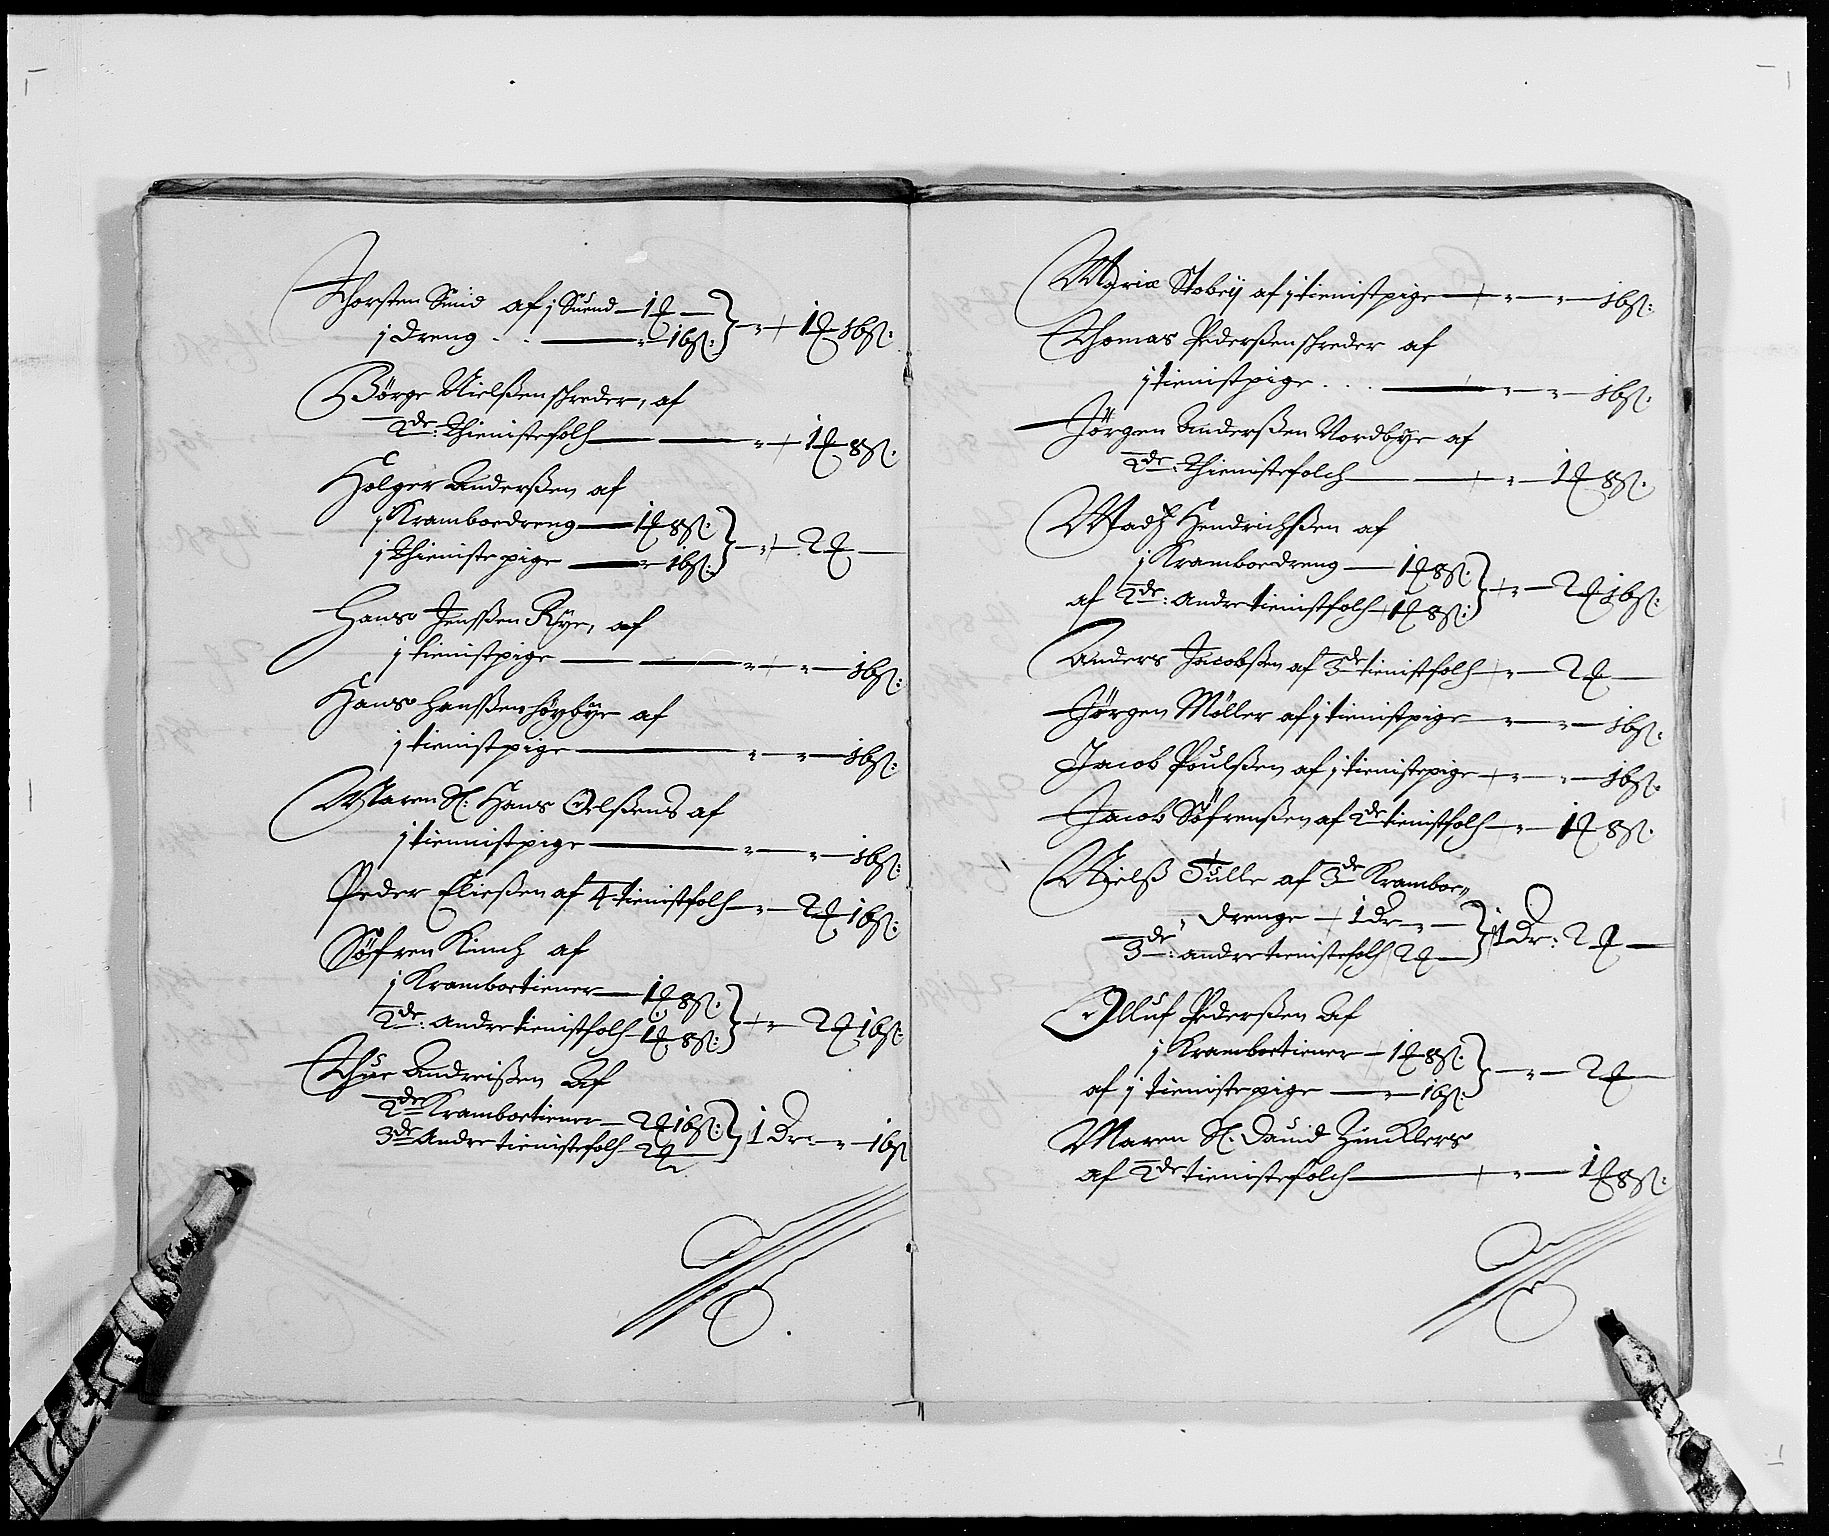 Thorsten Smid af j Suend — 1 ℔ —
j dreng . . — „ — 16 ß: } — „ — 1 ℔ 16 ß:
Börge Nielßen schreder, af
2de: thienistefolch — — „ — 1 ℔ 8 ß:
Holger Anderßen af
j Kramboedreng — 1 ℔ 8 ß:
j thienistepige — „ — 16 ß: } — „ — 2 ℔ —
Hans Jenßen Rye, af
j tienistpige — — „ — „ — 16 ß:
Hans Hanßen höybÿe af
j tienistpige — „ — „ — 16 ß:
Maren Sl: Hans Oelßens af
j tienistpige — „ — „ — 16 ß:
Peder Eließen af 4 tienistfolch — „ — 2 ℔ 16 ß:
Söfren Kinch af
j Kramboetiener — 1 ℔ 8 ß:
2de: andre tienistfolch — 1 ℔ 8 ß: } — „ — 2 ℔ 16 ß:
Thue Andreißen Af
2de Kramboetiener — 2 ℔ 16 ß:
3de Andre tienistefolch — 2 ℔ } 1 Dr — „ — 16 ß
Maria Stobeÿ af j tienistpige — „ — „ — 16 ß:
Thomas Pederßen schreder af
j tienistpige . . . — „ — „ — 16 ß:
Jörgen Anderßen Nordbÿe af
2de: thienistefolch — — „ — 1 ℔ 8 ß:
Madß Hendrichßen af
j Kramboedreng — 1 ℔ 8 ß:
af 2de: andre tienistfolch 1 ℔ 8 ß: } — „ — 2 ℔ 16 ß:
Anders Jacobßen af 3de tienistfolch — „ — 2 ℔ —
Jörgen Möller af j tienistpige — „ — „ — 16 ß:
Jacob Poulßen af j tienistepige — „ — „ — 16 ß:
Jacob Söfrenßen af 2de tienistfolch — „ — 1 ℔ 8 ß:
Nielß Tulle af 3de Kramboe„
drenge — 1 Dr — „ —
3de: andre tienistefolch 2 ℔ — } 1 Dr: 2 ℔ —
Olluf Pederßen Af
j Kramboetiener — 1 ℔ 8 ß:
af j tienistepige — „ — 16 ß: } — „ — 2 ℔ —
Maren Sl: Dauid Zincklers
af 2de tienistefolch — „ — 1 ℔ 8 ß: